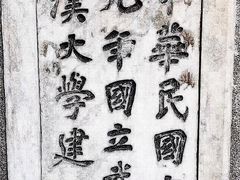 華民國
年國立
漢大學建